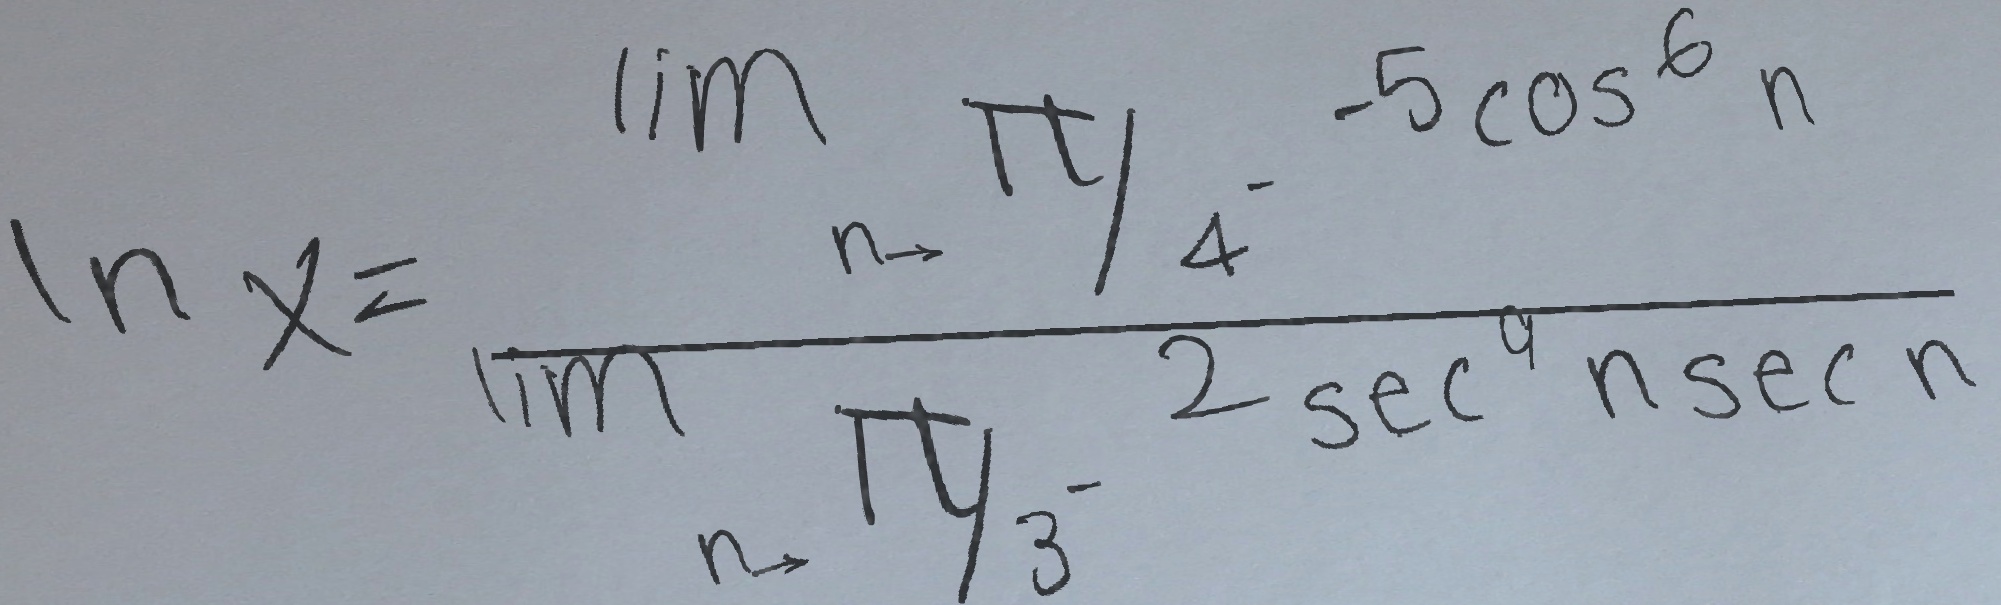 \ln x = \frac{\lim_{n \to \pi/4^-} -5\cos^6 n}{\lim_{n \to \pi/3^-} 2\sec^9 n \sec n}